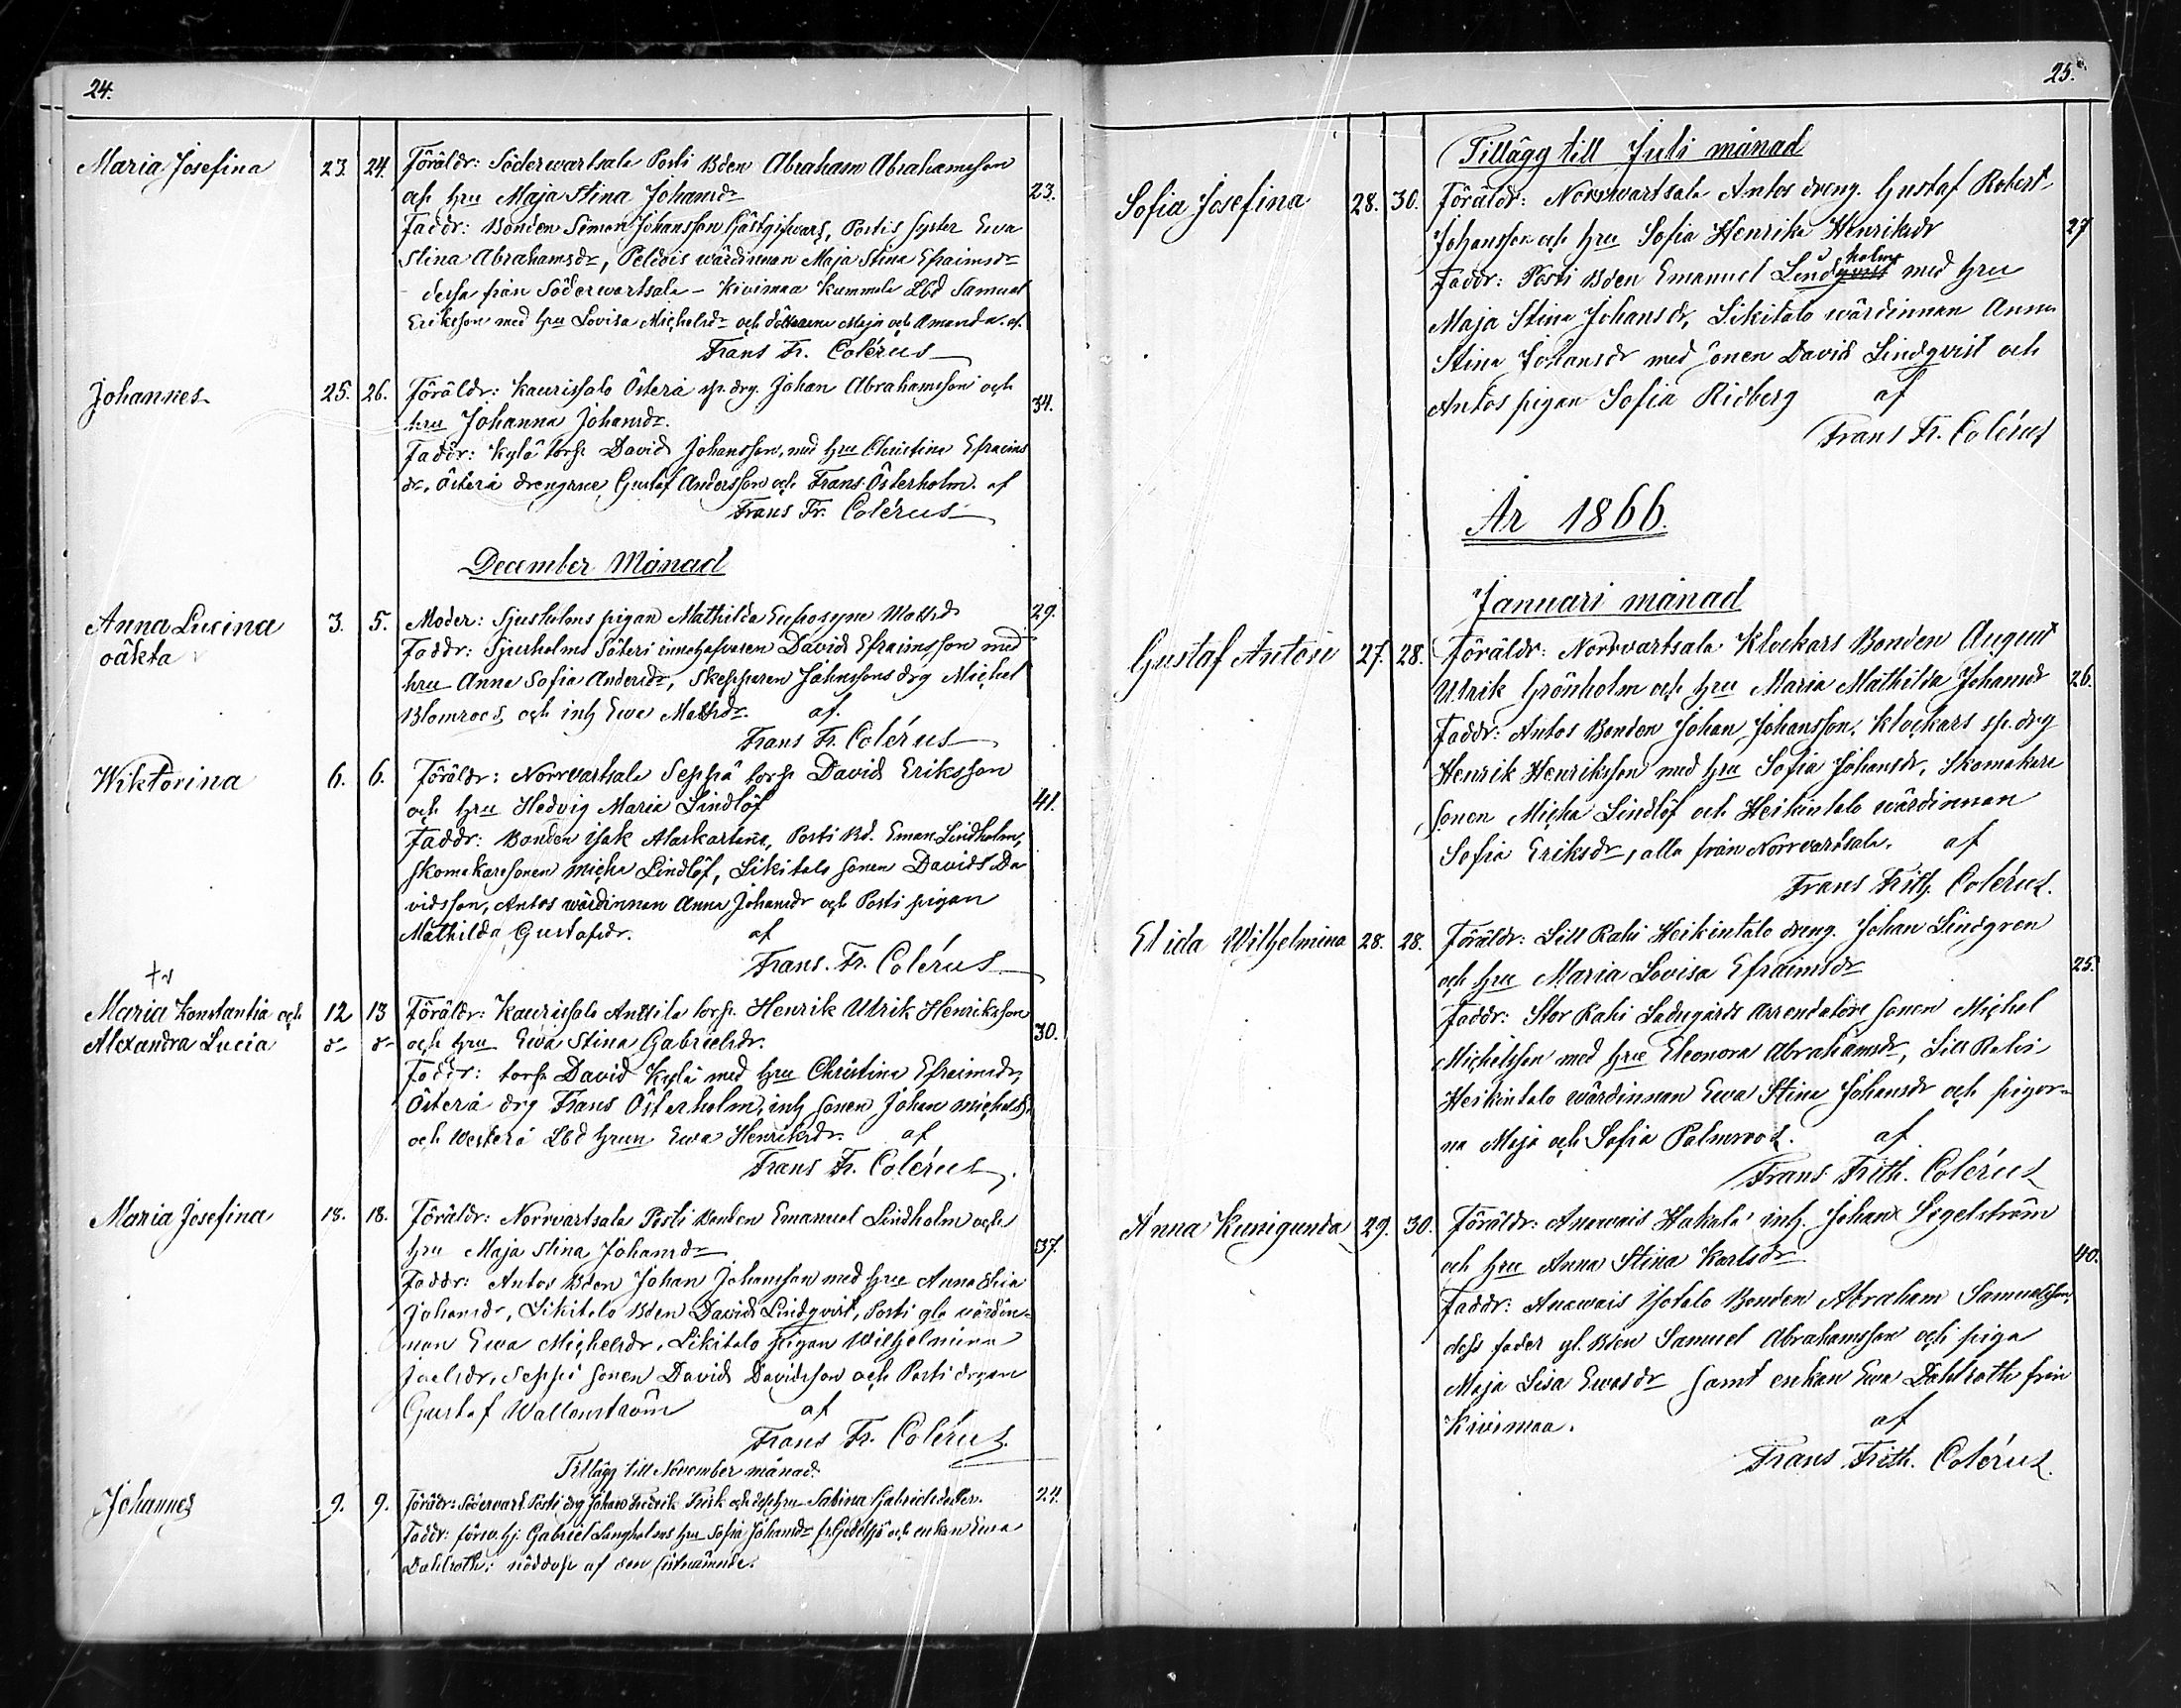 24.
Maria Josefina 23. 24. Föräldr: Söderwartsala Posti Bden Abraham Abrahamsson
och hru Maja Stina Johansdr 23.
Faddr: Bonden Simon Johansson Gästgifwars, Postis syster Ewa
Stina Abrahamsdr, Peldois wärdinnan Maja Stina Efraimsdr
dessa från Söderwartsala – Kivimaa Kummela Lbd Samuel
Eriksson med hru Lovisa Michelsdr och döttrarne Maja och Amanda. af.
Frans Fr. Colérus
Johannes 25. 26. Föräldr: Kaurissalo Österå sp. drg. Johan Abrahamsson och
hru Johanna Johansdr. 34.
Faddr: Kylä torp. David Johansson, med hru Christina Efraims
dr, Österå drengarne Gustaf Andersson och Frans Österholm. af
Frans Fr. Colérus
December Månad
Anna Lucina 3. 5. Moder: Sjusholms pigan Mathilda Eufrosyne Mattsd. 29.
oäkta Faddr: Sjusholms Säteri innehafvaren David Efraimsson med
hru Anna Sofia Andersdr, Skepparen Johnssons drg Michel
Blomroos och inh Ewa Mattsdr. af.
Frans Fr. Colérus
Wiktorina 6. 6. Föräldr: Norrvartsala Seppä torp. David Eriksson
och hru Hedvig Maria Lindlöf 41.
Faddr: Bonden Isak Alaskartano, Posti Bd. Eman. Lindholm,
skomakaresonen Micha Lindlöf, Likitalo sonen David Da
vidsson, Antos wärdinnan Anna Johansdr och Posti pigan
Mathilda Gustafsdr. af
Frans. Fr. Colérus
Maria Konstantia och 12 13 Föräldr: Kaurissalo Anttila torp. Henrik Ulrik Henriksson
Alexandra Lucia dr dr och hru Ewa Stina Gabrielsdr. 30.
Faddr: torp. David Kylä med hru Christina Efraimsdr,
Österå drg Frans Österholm, inh sonen Johan Michelss.
och Westerå Lbd hrun Ewa Henriksdr. af
Frans Fr. Colérus
Maria Josefina 18. 18. Föräldr: Norrvartsala Posti Bonden Emanuel Lindholm och
hru Maja Stina Johansdr 37.
Faddr: Antos Bden Johan Johansson med hru Anna Stina
Johansdr, Likitalo Bden David Lindqvist, Posti gla wärdin-
nan Ewa Michelsdr, Likitalo pigan Wilhelmina
Joelsdr, Seppä sonen David Davidsson och Posti drgen
Gustaf Wallenström af
Frans Fr. Colérus.
Tillägg till November månad.
Johannes 9. 9. Förädr: Södervart. Posti drg Johan Fredrik Frisk och dess hru Sabina Gabrielsdotter. 24.
Faddr: Gabriel Langholms hru Sofia Johansdr och enkan Ewa
Dahlroth: nöddöpt af den sistnämnde.
25.
Tillägg till Juli månad
Sofia Josefina 28. 30. Föräldr: Norrwartsala Antos dreng. Gustaf Robert
Johansson och hru Sofia Henrika Henriksdr 27
Faddr: Posti Bden Emanuel Lindqvist holm med hru
Maja Stina Johansdr, Likitalo wärdinnan Anna
Stina Johansdr med sonen David Lindqvist och
Antos pigan Sofia Ridberg af
Frans Fr. Colérus
År 1866.
Januari månad
Gustaf Anton 27. 28. Föräldr: Norrvartsala Klockars Bonden August
Ulrik Grönholm och hru Maria Mathilda Johansdr 26.
Faddr: Antos Bonden Johan Johansson, Klockars sp. drg
Henrik Henriksson med hru Sofia Johansdr, Skomakare
sonen Micha Lindlöf och Heikintalo wärdinnan
Sofia Eriksdr, alla från Norrvartsala. af
Frans Frith. Colérus.
Elida Wilhelmina 28. 28. Föräldr: Lill Rahi Heikintalo dreng. Johan Lindgren
och hru Maria Lovisa Efraimsdr 25.
Faddr: Stor Rahi Ladugårds arrendatore sonen Michel
Michelsson med hru Eleonora Abrahamsdr, Lill Rahi
Heikintalo wärdinnan Ewa Stina Johansdr och pigor-
na Maja och Sofia Palmroos. af
Frans Frith. Colérus
Anna Kunigunda 29. 30. Föräldr: Anawais Hakala inh. Johan Segelström
och hru Anna Stina Karlsdr 40.
Faddr: Anawais Isotalo Bonden Abraham Samuelsson,
dess fader gl. Bden Samuel Abrahamsson och piga
Maja Lisa Ewasdr samt enkan Ewa Dahlroth från
Kivimaa. af
Frans Frith. Colérus.